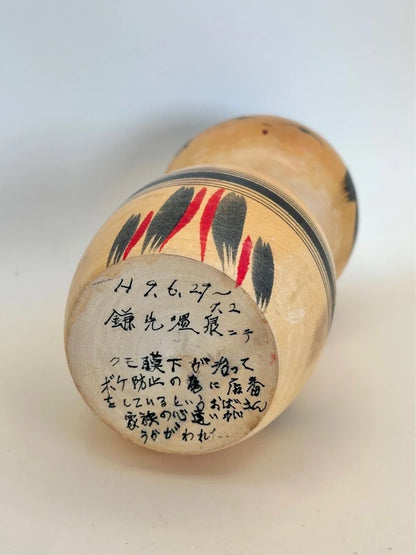 H 9.6.27〜
鎌先温泉ニテ
クモ膜下が治って
ボケ防止の為に店番
をしているというおばさん
家族の心遣いが
うかがわれ